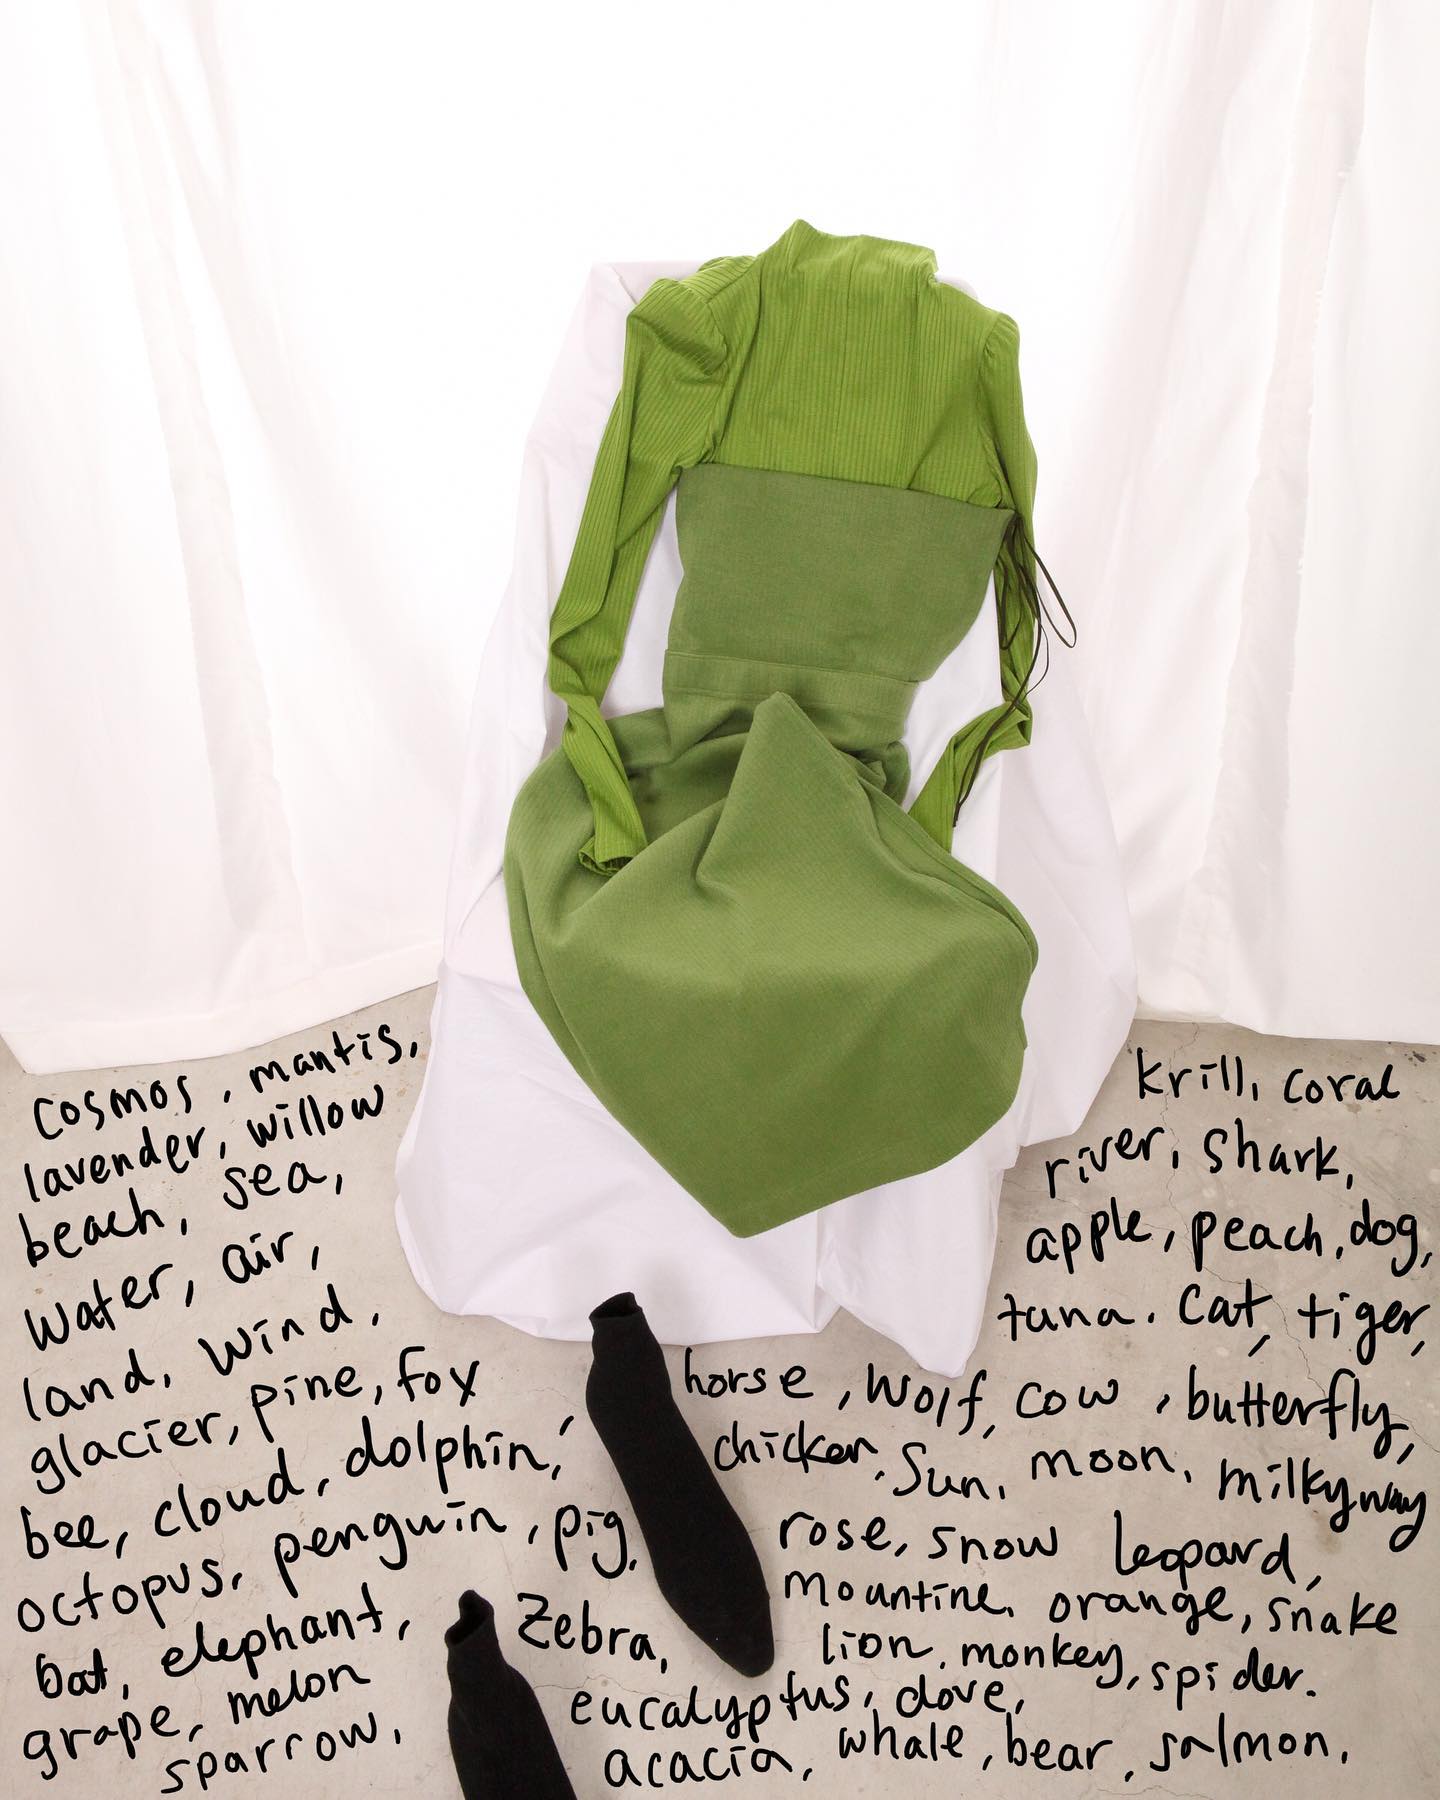 cosmos, mantis,
lavender, willow
beach, sea,
water, air,
land, wind,
glacier, pine, fox
bee, cloud, dolphin,
octopus, penguin, pig,
bat, elephant,
grape, melon
sparrow,
Zebra,
krill, coral
river, shark,
apple, peach, dog,
tuna. cat, tiger,
horse, wolf, cow, butterfly,
chicken, sun, moon, milkyway
rose, snow leopard,
mountine, orange, snake
lion, monkey, spider.
eucalyptus, dove,
acacia, whale, bear, salmon.